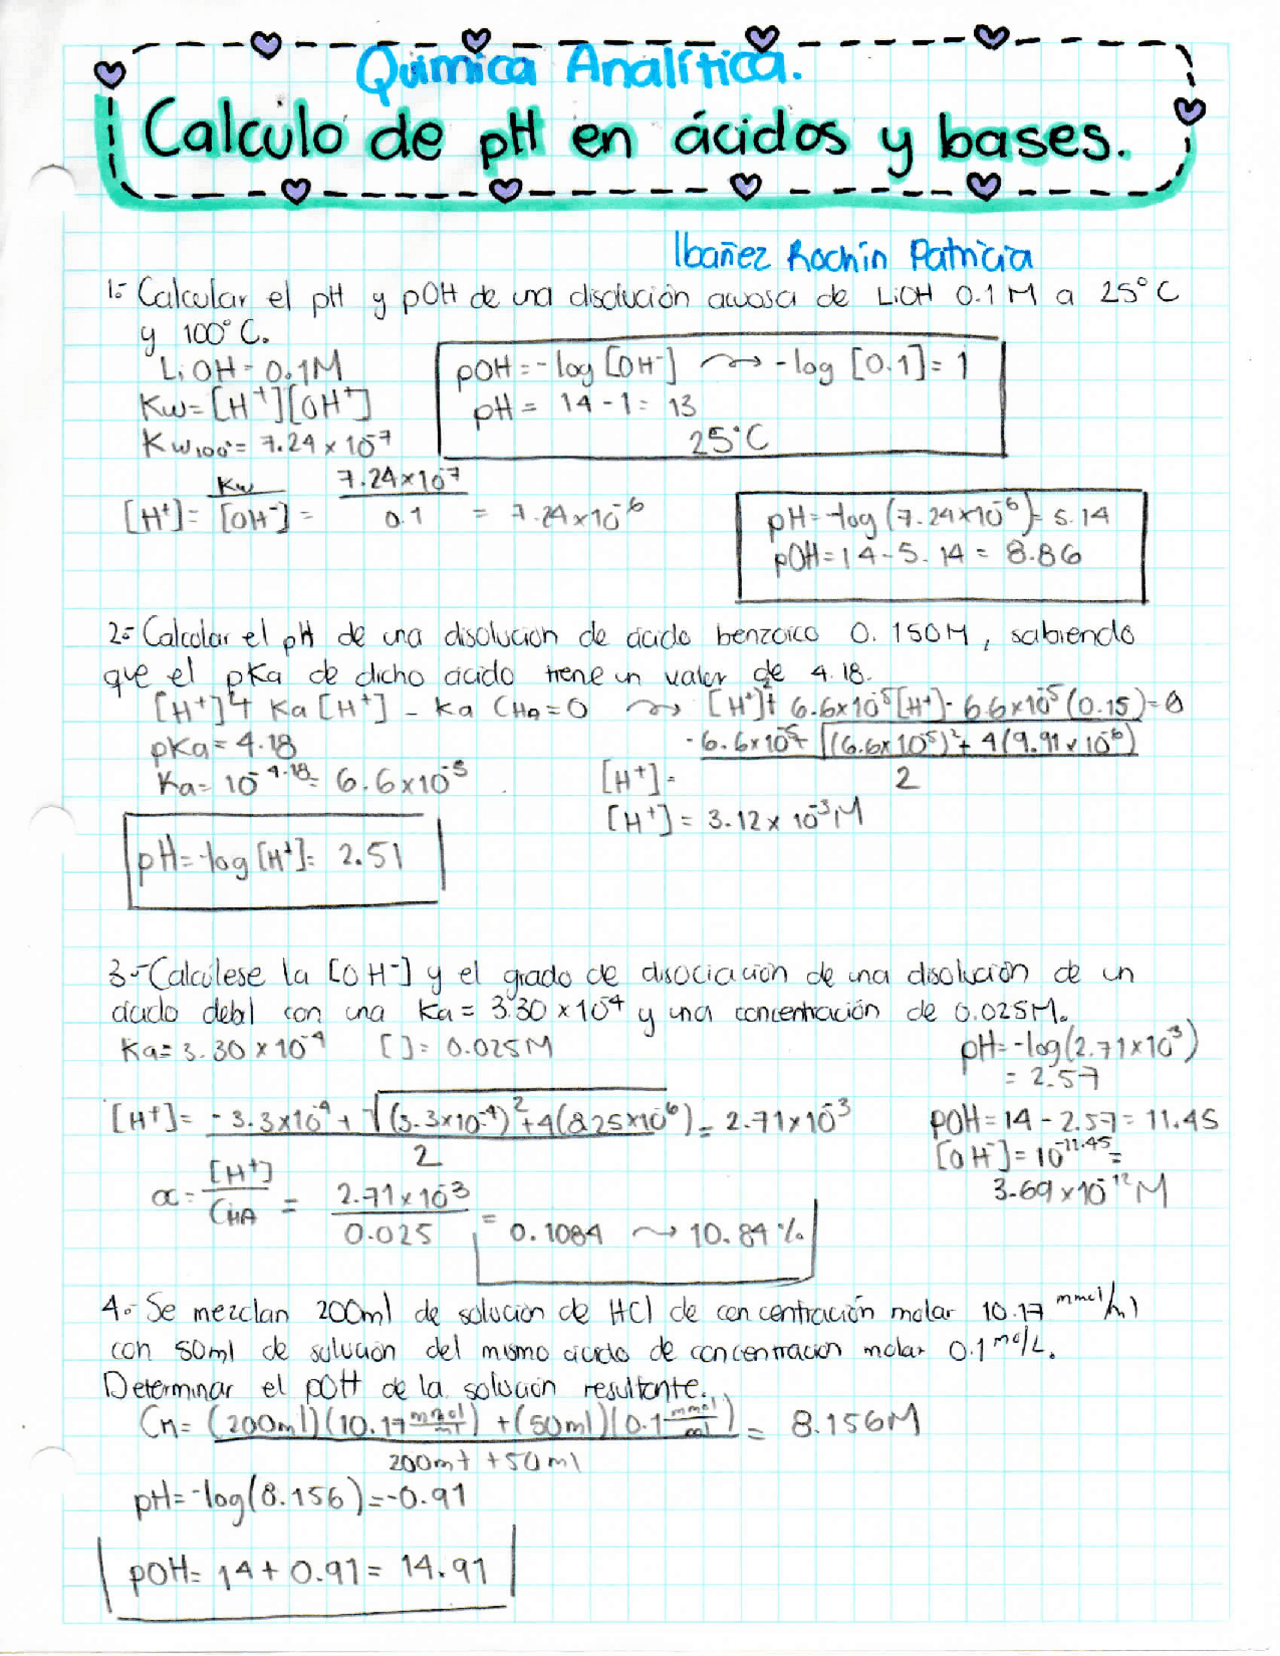 Química Analítica.
Calculo de pH en ácidos y bases.
Ibañez Rochin Patricia
1.- Calcular el pH y pOH de una disolución acuosa de LiOH 0.1M a 25°C
y 100°C.
LiOH = 0.1M
Kw = [H⁺][OH⁺]
Kw₁₀₀° = 7.24 x 10⁻⁷
pOH = -log [OH⁻] ⟿ -log [0.1] = 1
pH = 14 - 1 = 13
25°C
[H⁺] = Kw / [OH⁻] = 7.24x10⁻⁷ / 0.1 = 7.24x10⁻⁶
pH = -log (7.24x10⁻⁶) = 5.14
pOH = 14 - 5.14 = 8.86
2.- Calcular el pH de una disolucion de ácido benzoico 0.150M, sabiendo
que el pKa de dicho ácido tiene un valor de 4.18.
[H⁺]² + Ka [H⁺] - Ka CHA = 0 ⟿ [H⁺]² + 6.6x10⁻⁵ [H⁺] - 6.6x10⁻⁵ (0.15) = 0
pKa = 4.18
Ka = 10⁻⁴·¹⁸ = 6.6x10⁻⁵
[H⁺] = -6.6x10⁻⁵ + √((6.6x10⁻⁵)² + 4(9.91x10⁻⁶)) / 2
[H⁺] = 3.12 x 10⁻³ M
pH = -log [H⁺] = 2.51
3.- Calcúlese la [OH⁻] y el grado de disociación de una disolución de un
ácido debil con una Ka = 3.30 x 10⁻⁴ y una concentración de 0.025M.
Ka = 3.30 x 10⁻⁴ [ ] = 0.025M
pH = -log(2.71x10⁻³)
= 2.57
[H⁺] = -3.3x10⁻⁴ + √((3.3x10⁻⁴)² + 4(8.25x10⁻⁶)) / 2 = 2.71x10⁻³
pOH = 14 - 2.57 = 11.45
[OH⁻] = 10⁻¹¹·⁴⁵ =
3.69 x 10⁻¹² M
α = [H⁺] / CHA = 2.71 x 10⁻³ / 0.025 = 0.1084 ⟿ 10.84 %
4.- Se mezclan 200ml de solución de HCl de concentración molar 10.17 mmol/ml
con 50ml de solución del mismo ácido de concentracion molar 0.1 mol/L.
Determinar el pOH de la solución resultante.
Cn = (200ml)(10.17 mmol/ml) + (50ml)(0.1 mmol/ml) / 200ml + 50ml = 8.156M
pH = -log(8.156) = -0.91
pOH = 14 + 0.91 = 14.91